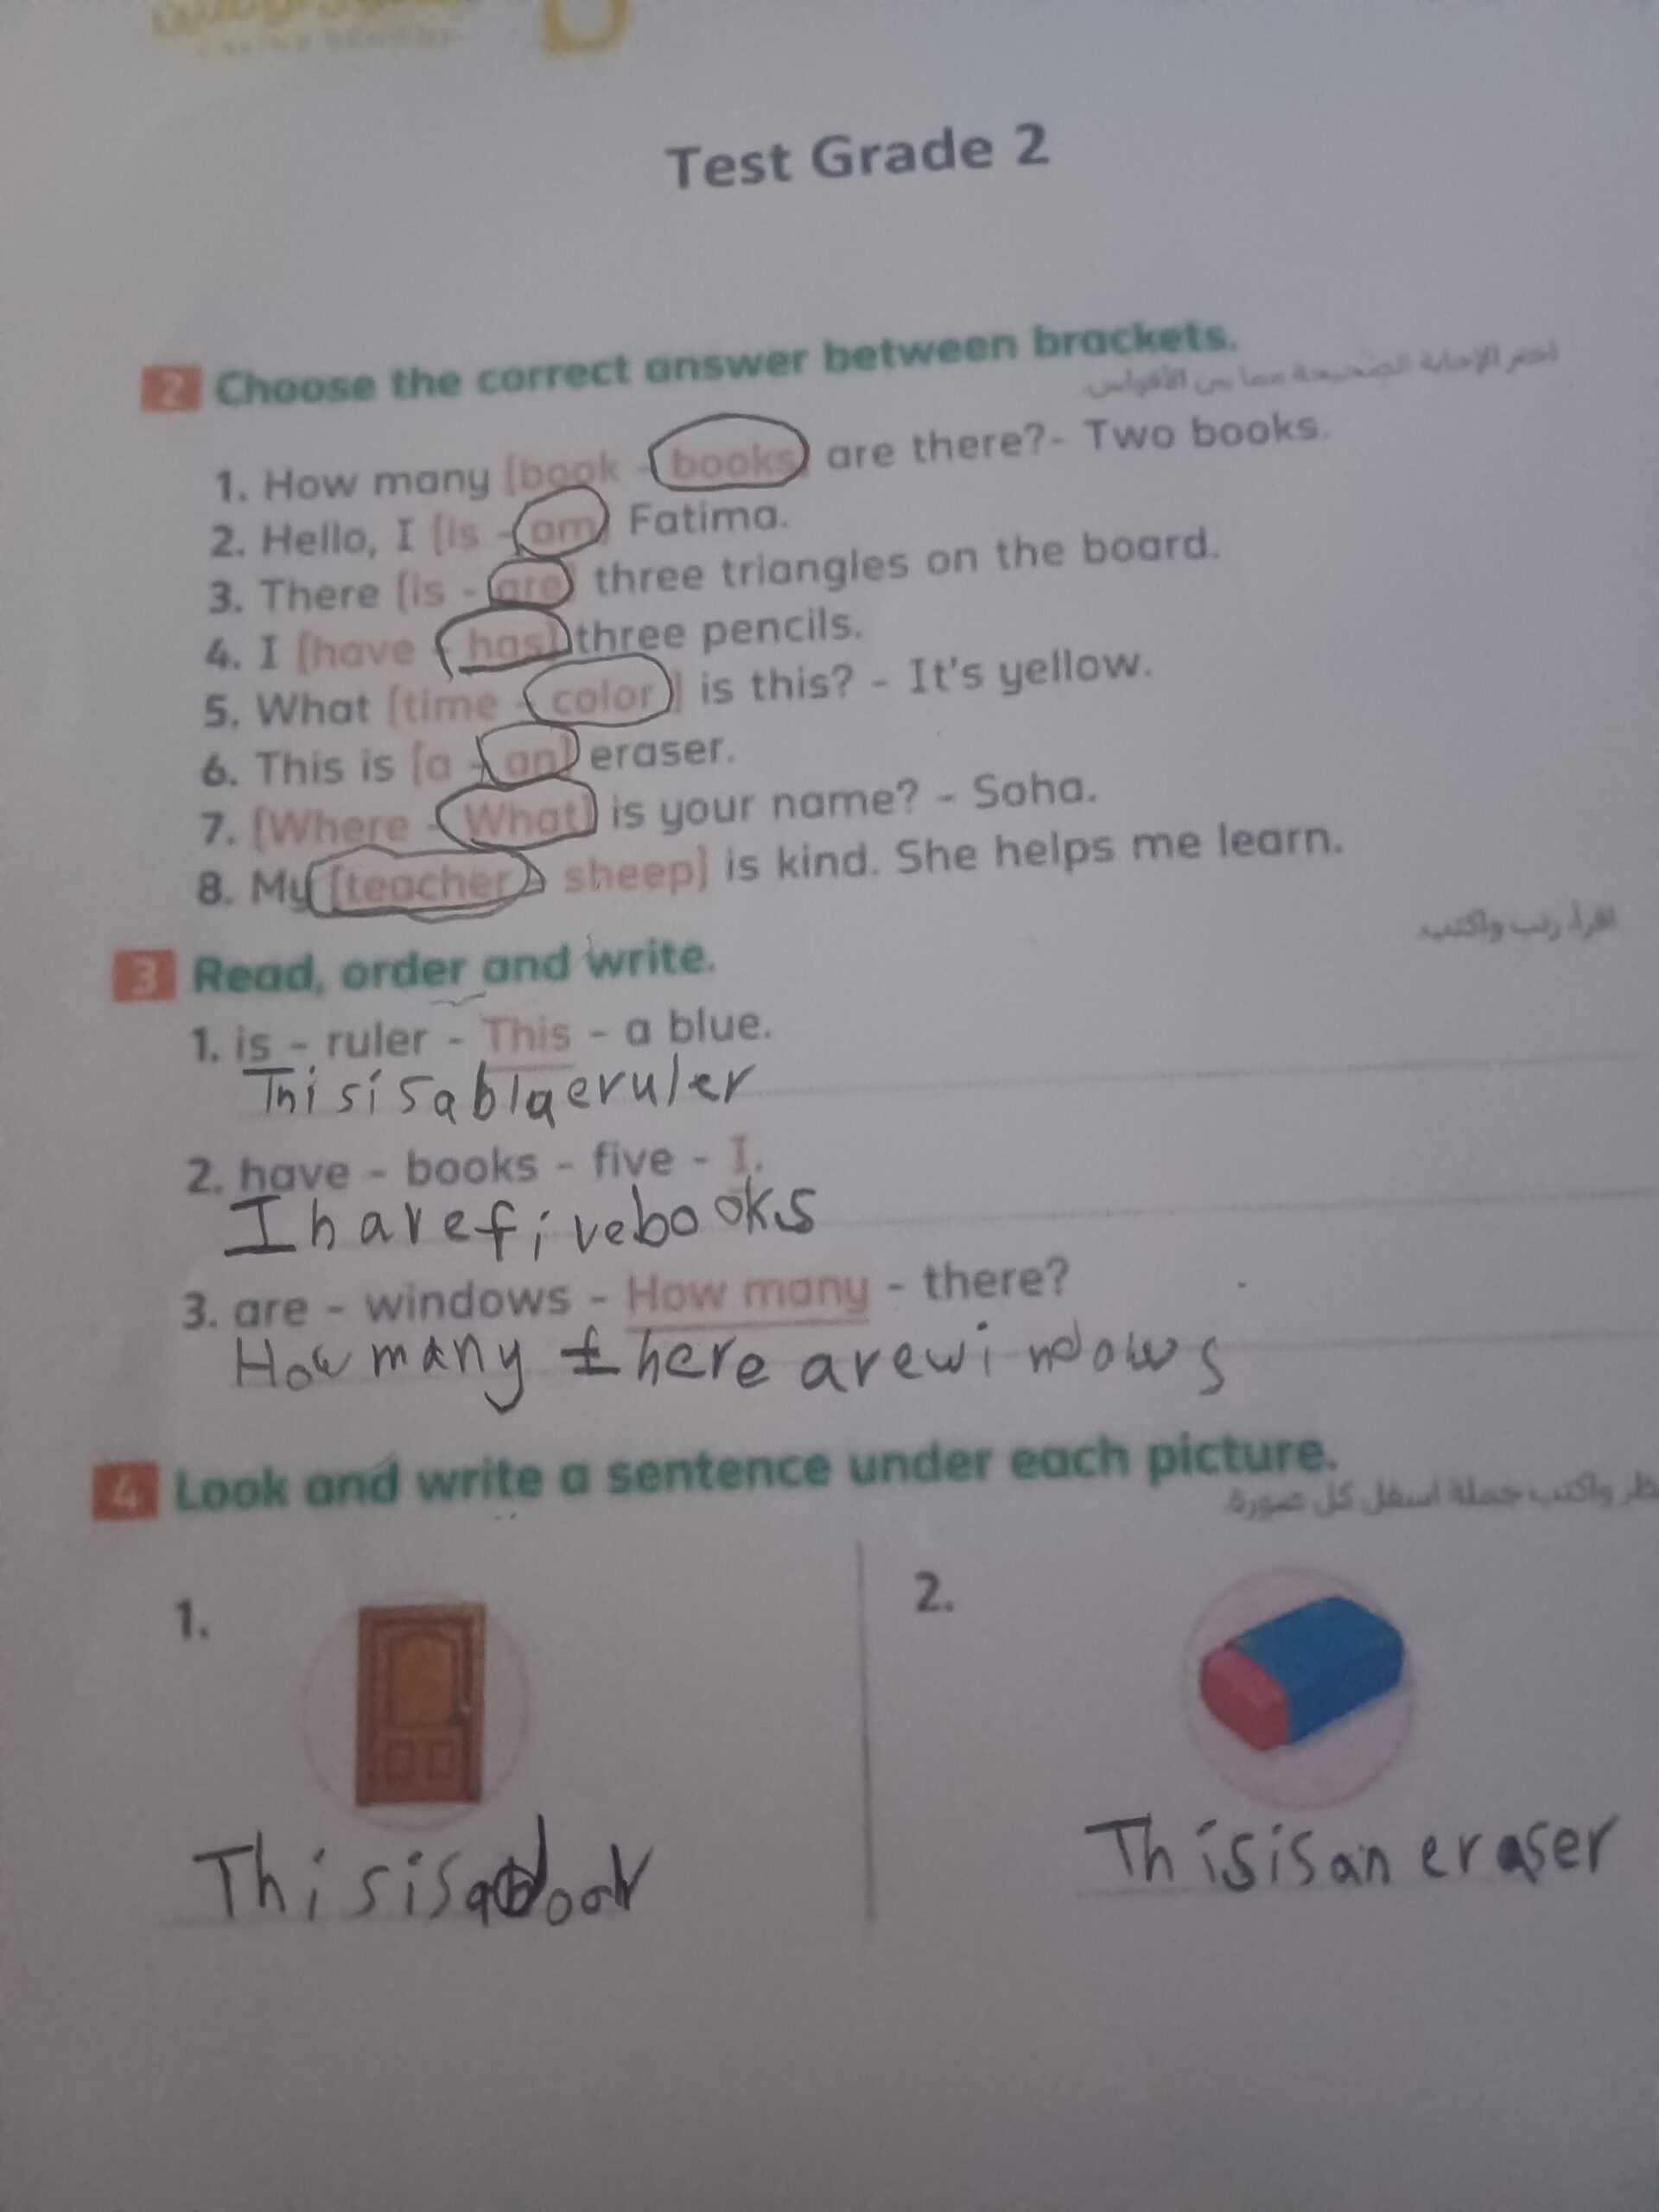 Test Grade 2
2 Choose the correct answer between brackets.
اختر الإجابة الصحيحة مما بين الأقواس.
1. How many [book - books] are there?- Two books.
2. Hello, I [is - am] Fatima.
3. There [is - are] three triangles on the board.
4. I [have - has] three pencils.
5. What [time - color] is this? - It's yellow.
6. This is [a - an] eraser.
7. [Where - What] is your name? - Soha.
8. My [teacher - sheep] is kind. She helps me learn.
3 Read, order and write.
اقرأ رتب واكتب.
1. is - ruler - This - a blue.
This is a blae ruler
2. have - books - five - I.
I have five books
3. are - windows - How many - there?
How many there are windows
4 Look and write a sentence under each picture.
واكتب جملة اسفل كل صورة.
1.
2.
This is a door
This is an eraser